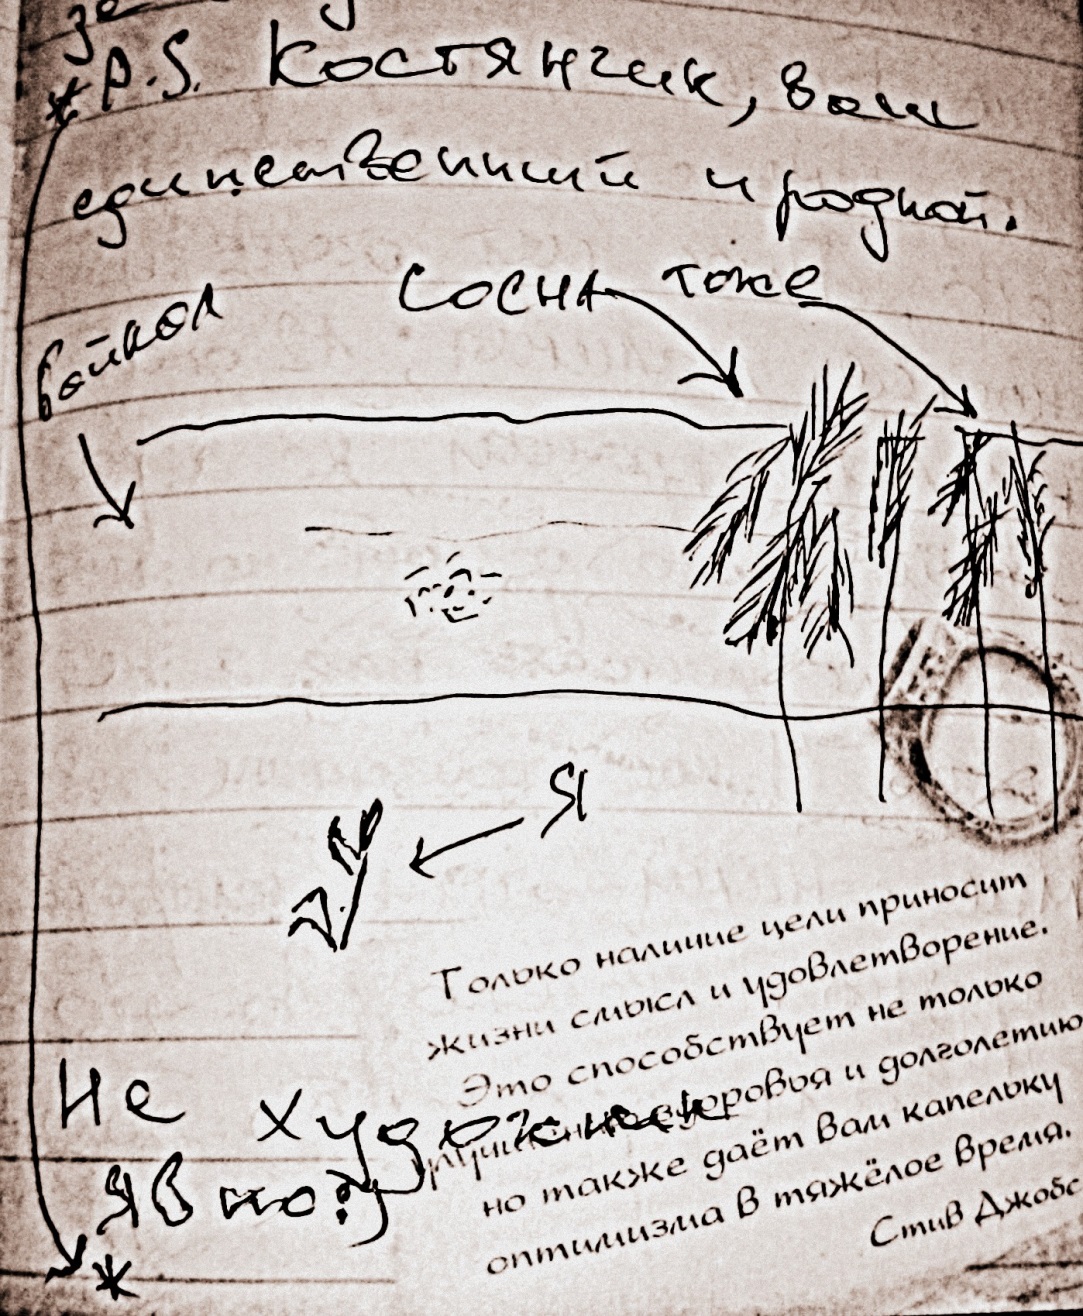 за
* P.S. Костянчик, ваш
единственный и родной.
Сосна тоже
Байкал
Я
Только наличие цели приносит
жизни смысл и удовлетворение.
Это способствует не только
улучшению здоровья и долголетию
но также даёт вам капельку
оптимизма в тяжёлое время.
Стив Джобс
Не художник
явно?
*